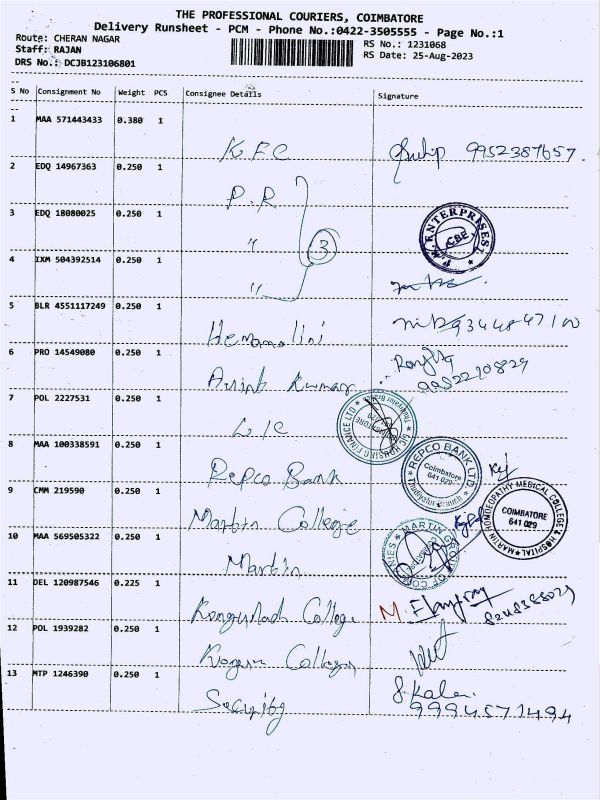 THE PROFESSIONAL COURIERS, COIMBATORE
Delivery Runsheet - PCM - Phone No.:0422-3505555 - Page No.:1
Route: CHERAN NAGAR
RS No.: 1231068
Staff: RAJAN
RS Date: 25-Aug-2023
DRS No.: DCJB123106801
S No Consignment No Weight PCS Consignee Details Signature
1 MAA 571443433 0.380 1
KFC 9952387657.
2 EDQ 14967363 0.250 1
P.R
3 EDQ 18080025 0.250 1
" 3
P.R. ENTERPRISES CBE
4 IXM 504392514 0.250 1
"
5 BLR 4551117249 0.250 1
Hemamalini
6 PRO 14549080 0.250 1
Arvinth Kumar
7 POL 2227531 0.250 1
LIC
LIC HOUSING FINANCE LTD
8 MAA 100338591 0.250 1
Repco Bank
REPCO BANK LTD. Coimbatore 641 029
9 CMM 219590 0.250 1
Martin College
MARTIN HOMOEOPATHY MEDICAL COLLEGE & HOSPITAL COIMBATORE 641 029
10 MAA 569505322 0.250 1
Martin
MARTIN GROUP OF COMPANIES
11 DEL 120987546 0.225 1
Kongunadu College M.
12 POL 1939282 0.250 1
College
13 MTP 1246390 0.250 1
Security S. Kalai
9994571494